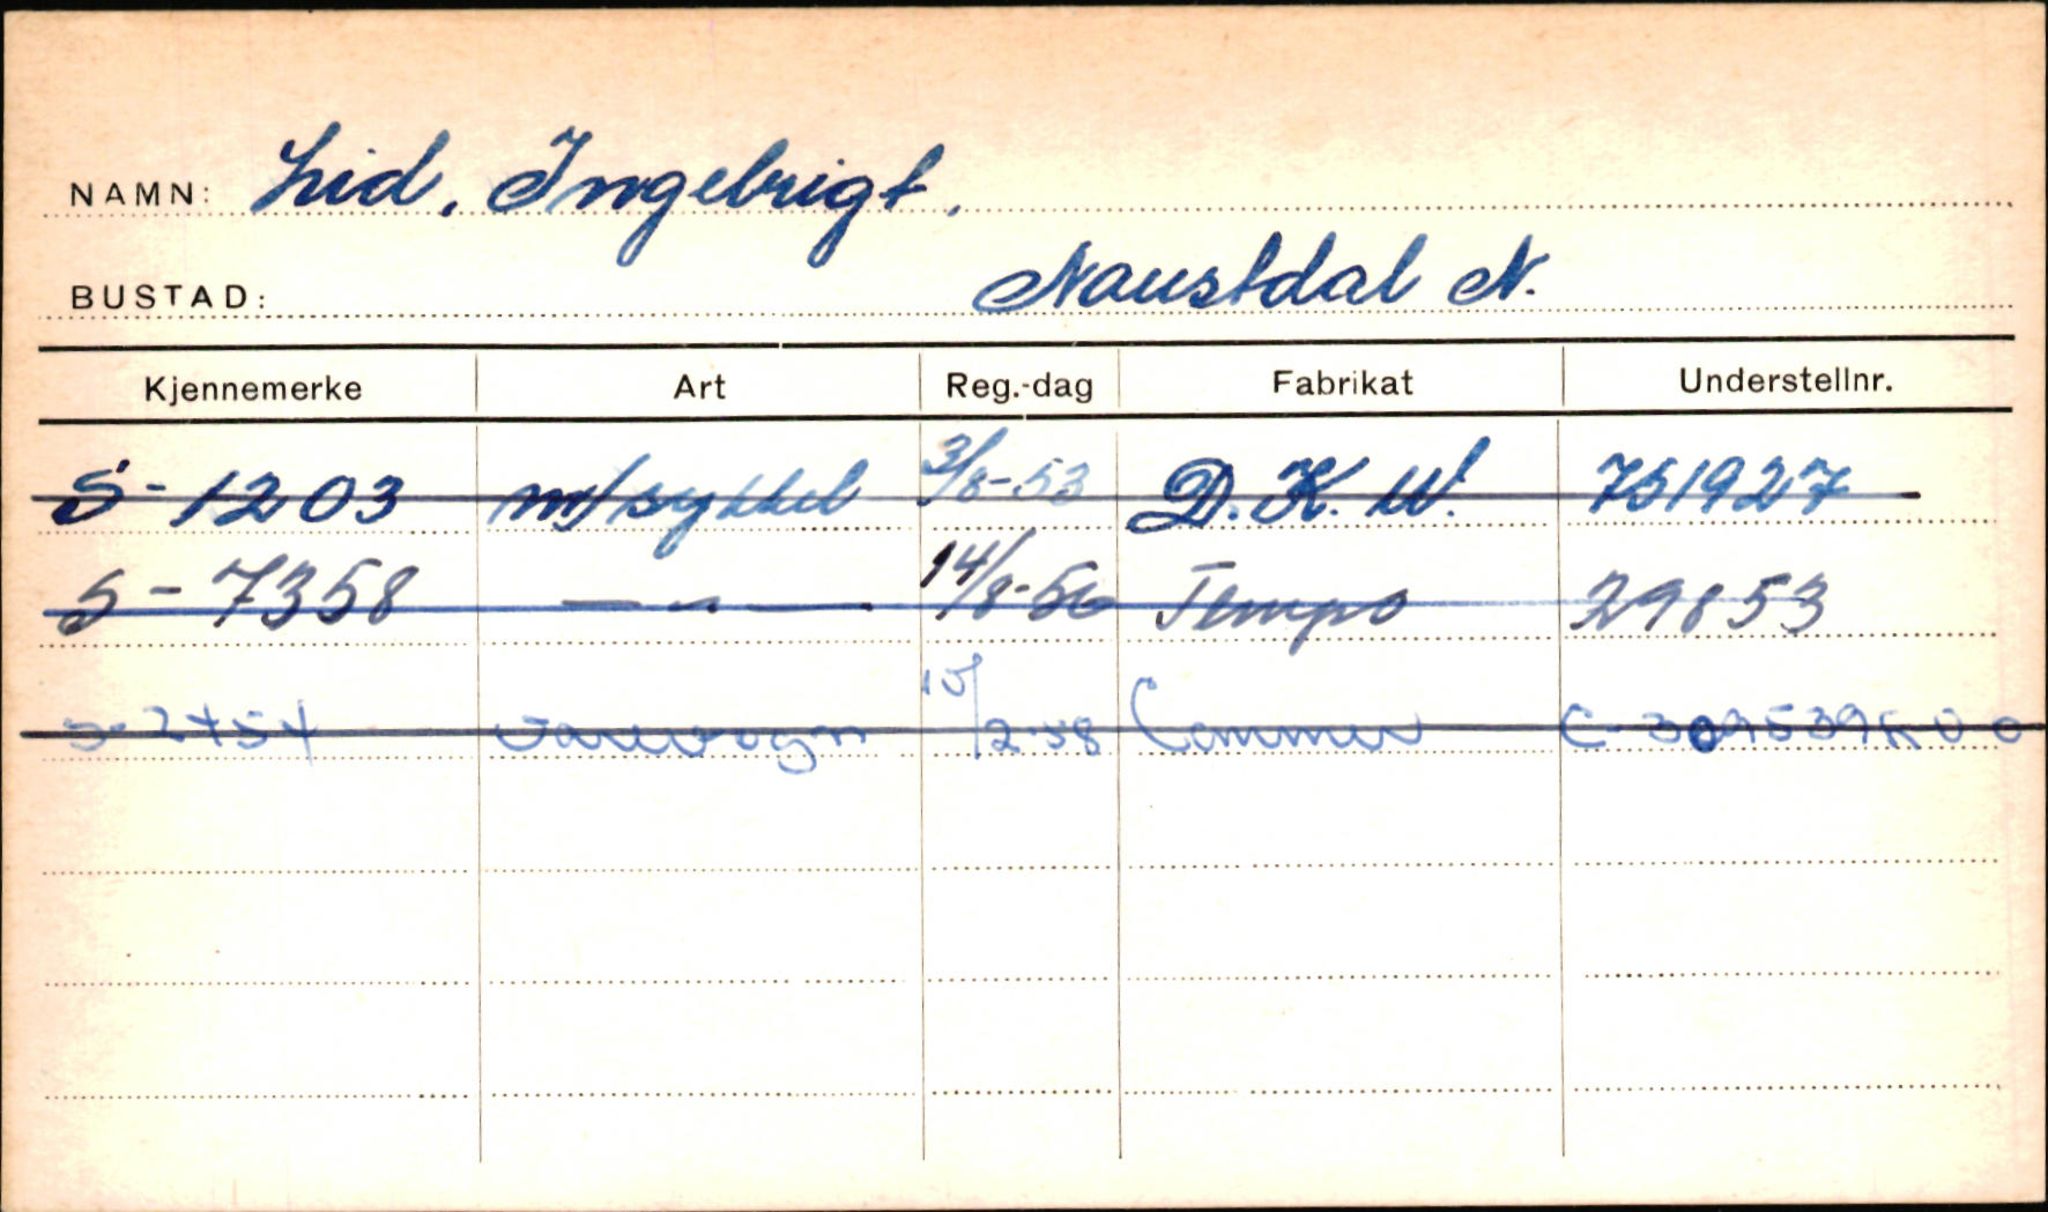 NAMN: Lid, Ingebrigt.
BUSTAD: Naustdal N.
Kjennemerke Art Reg.-dag Fabrikat Understellnr.
S-1203 m/sykkel 3/8-53 D.K.W. 751927
S-7358 — " — 14/8-56 Tempo 29853
S-2454 Varevogn 15/2-58 Commer